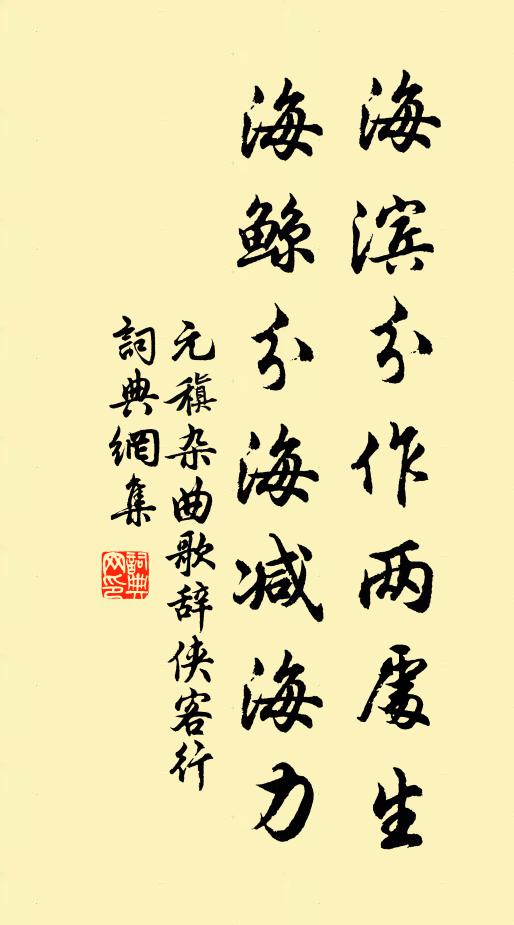 海滨分作两處生
海鲸分海减海力
元稹杂曲歌辞侠客行
詞典網集
詞典网印